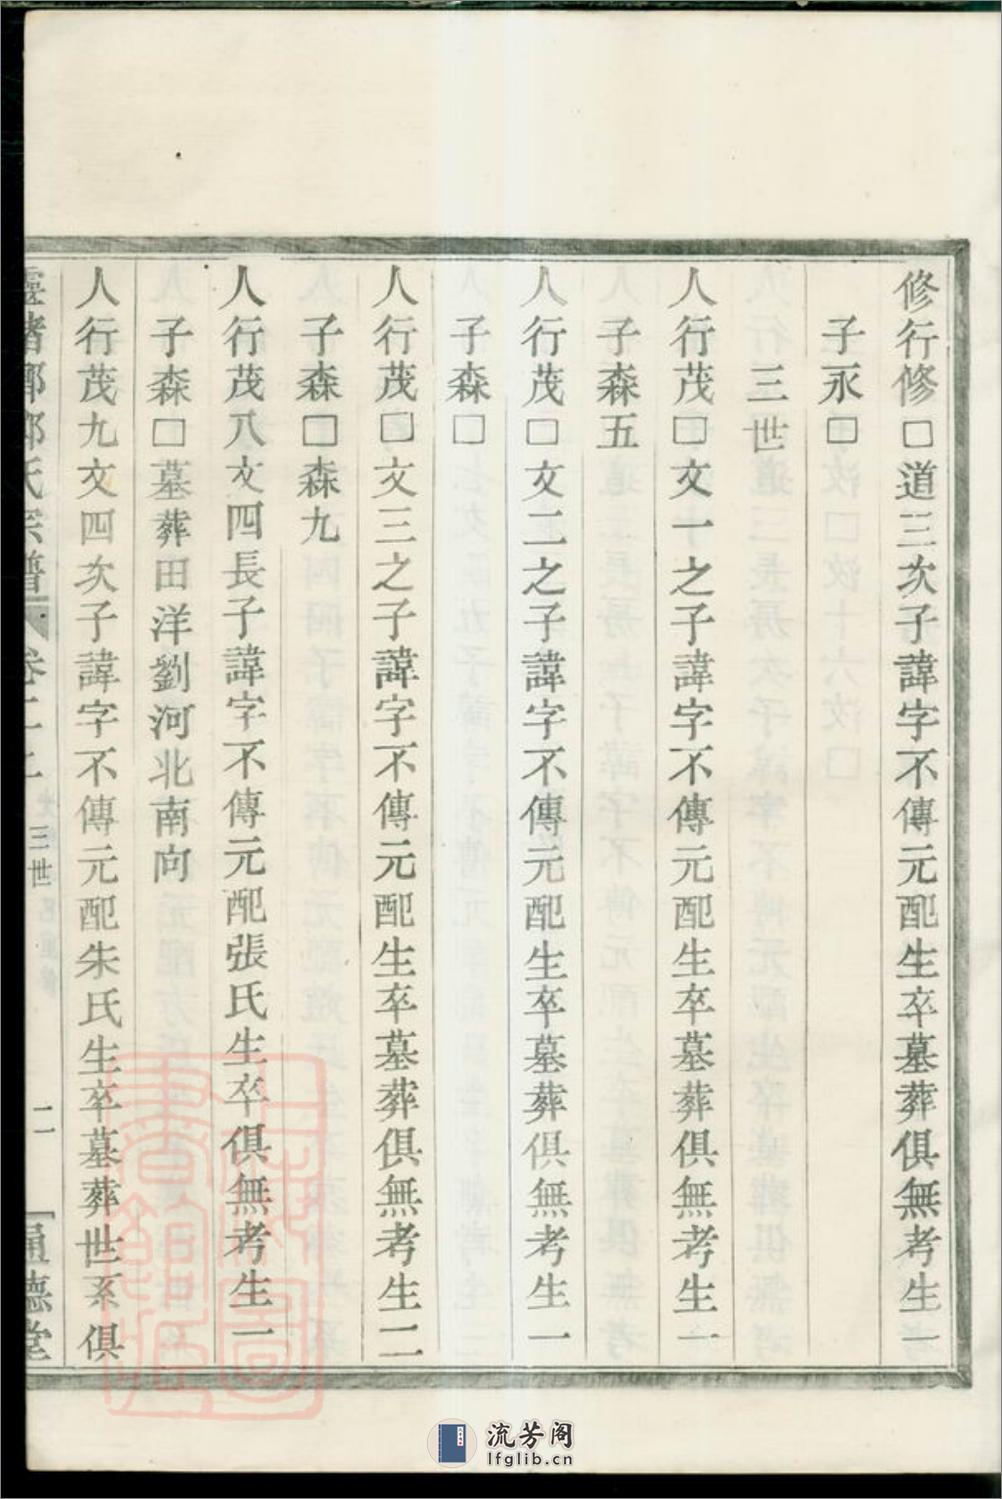 修行修□道三次子諱字不傳元配生卒墓葬俱無考生一
子永□
三世
人行茂□文一之子諱字不傳元配生卒墓葬俱無考生一
子森五
人行茂□文二之子諱字不傳元配生卒墓葬俱無考生一
子森□
人行茂□文三之子諱字不傳元配生卒墓葬俱無考生二
子森□森九
人行茂八文四長子諱字不傳元配張氏生卒俱無考生一
子森□墓葬田洋劉河北南向
人行茂九文四次子諱字不傳元配朱氏生卒墓葬世系俱
氏宗譜 卷二上 三世 二 通德堂
流芳阁
lfglib.cn